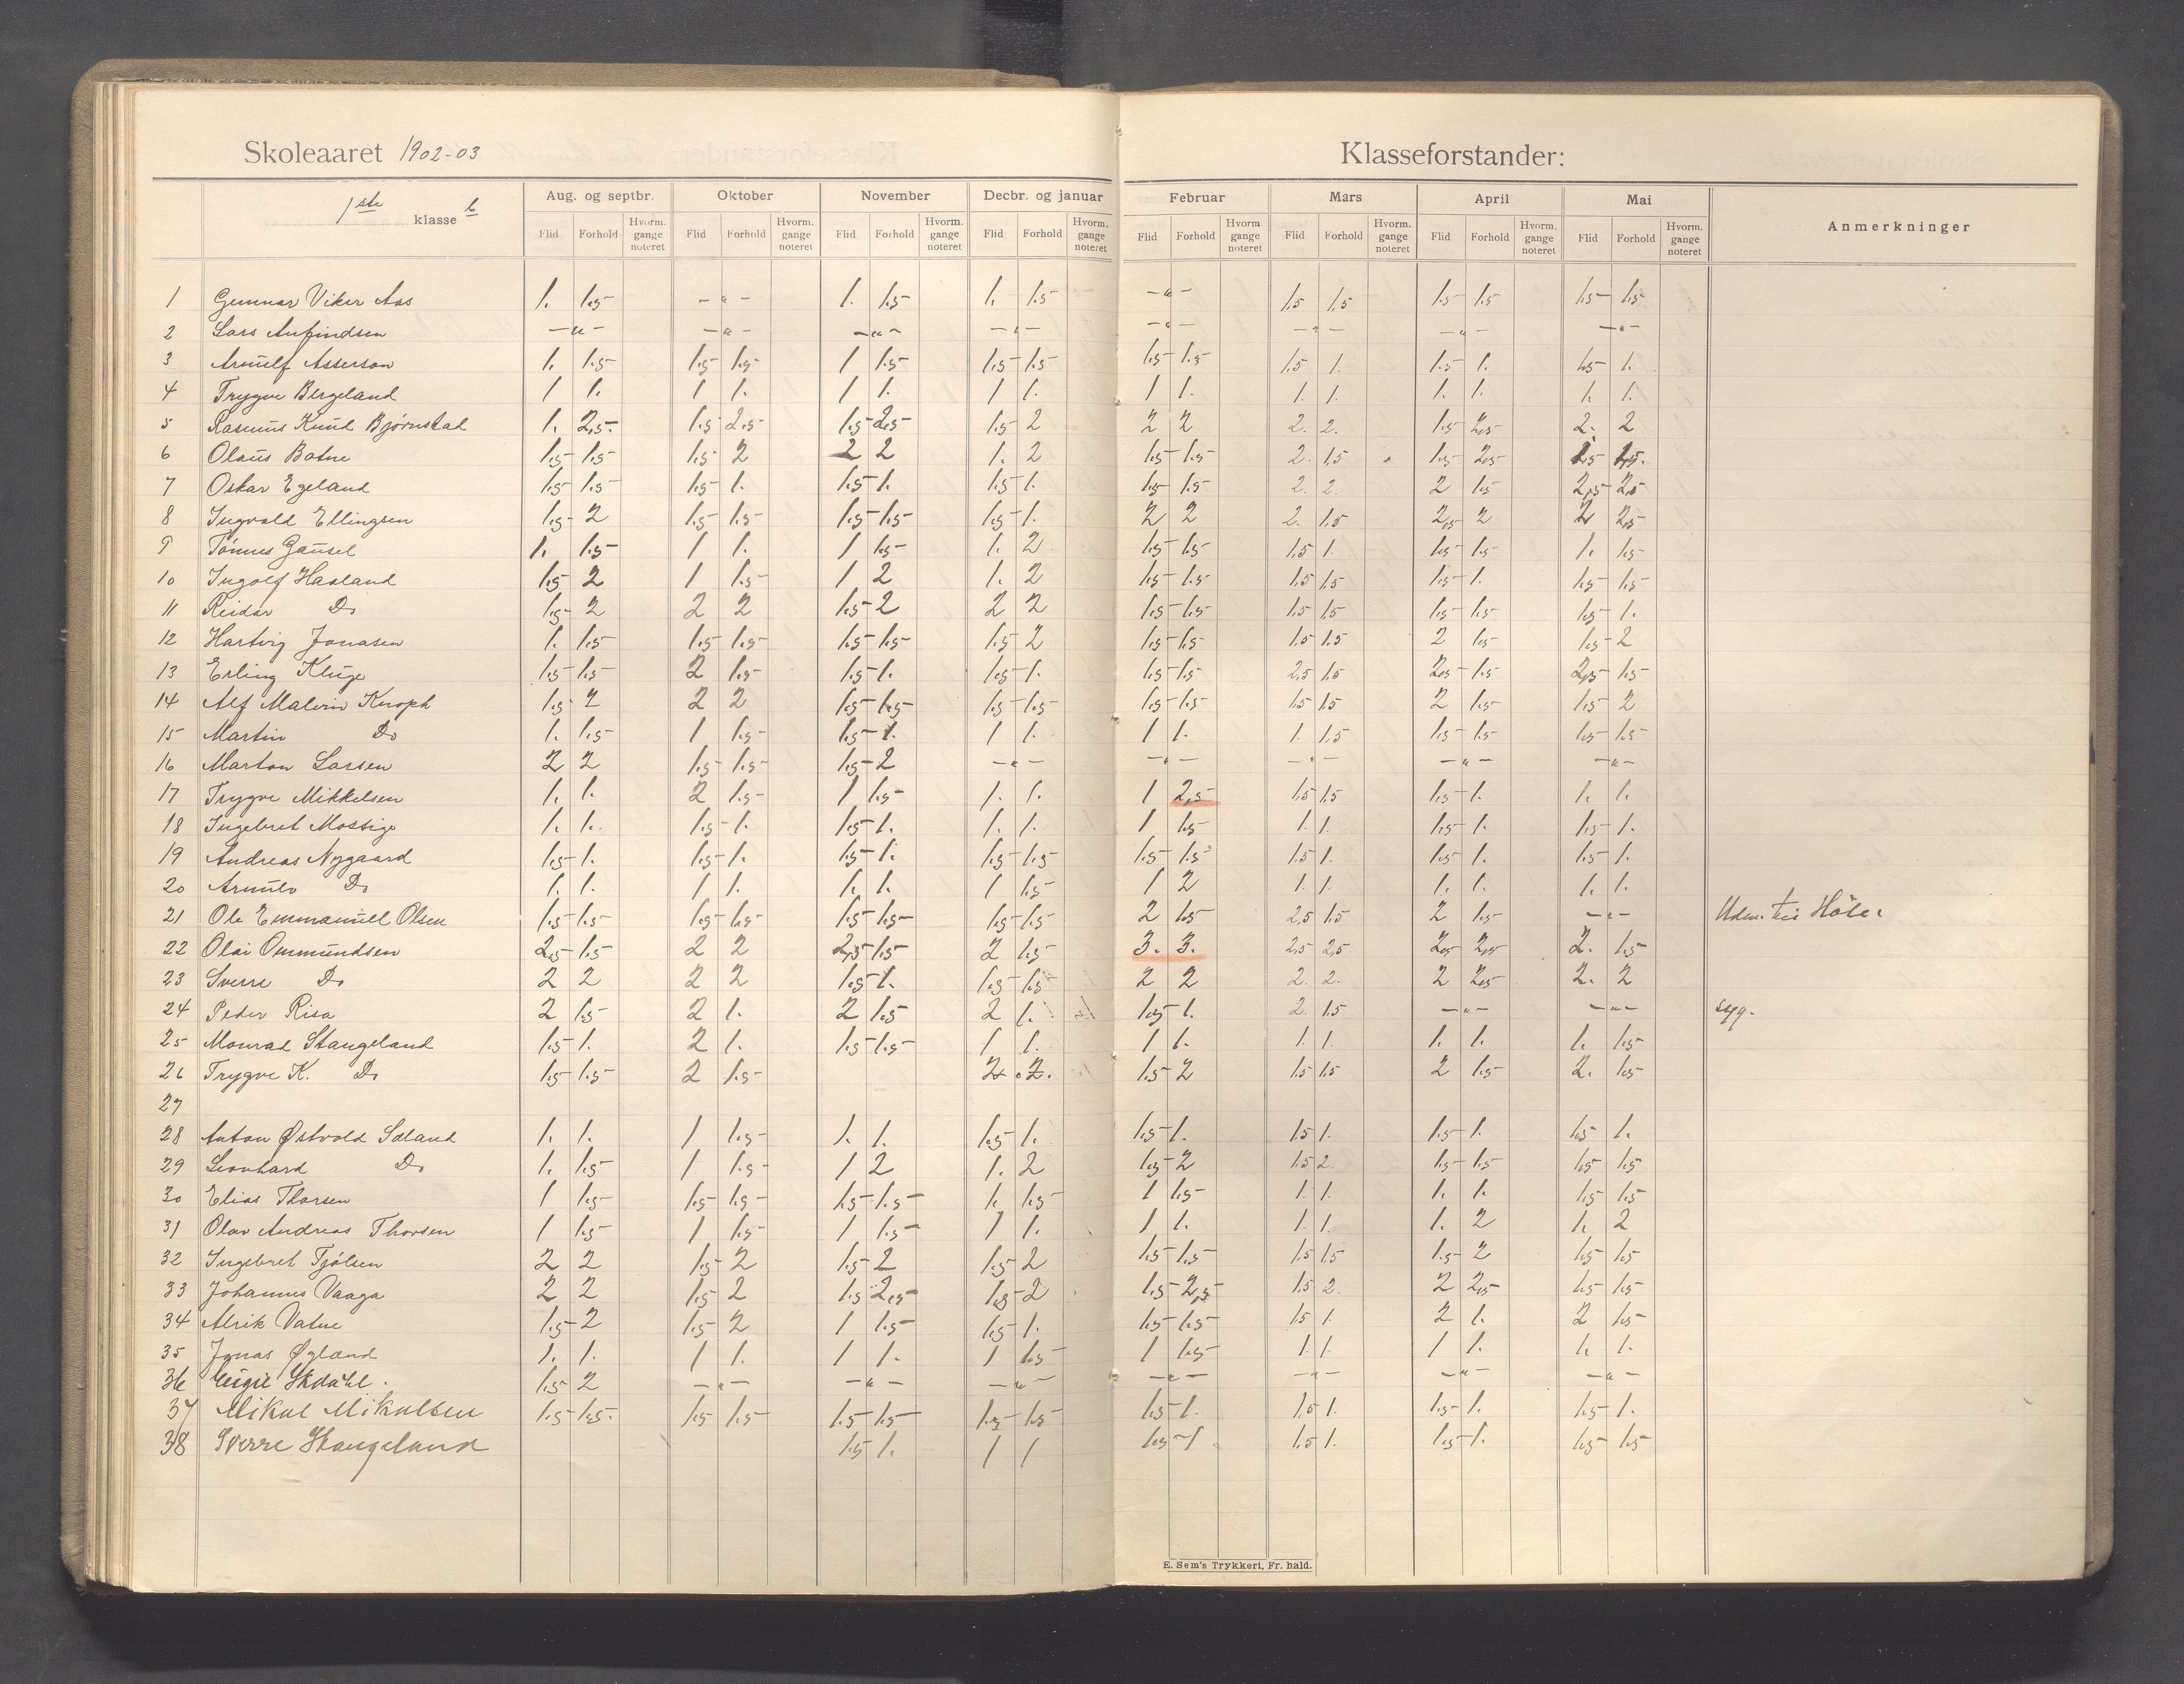 Skoleaaret 1902-03 Klasseforstander:
1ste klasse b Aug. og septbr. Oktober November Decbr. og januar Februar Mars April Mai Anmerkninger
Flid Forhold Hvorm. gange noteret Flid Forhold Hvorm. gange noteret Flid Forhold Hvorm. gange noteret Flid Forhold Hvorm. gange noteret Flid Forhold Hvorm. gange noteret Flid Forhold Hvorm. gange noteret Flid Forhold Hvorm. gange noteret Flid Forhold Hvorm. gange noteret
1 Gunnar Viker Aas 1. 1.5 -"- 1. 1.5 1. 1.5 -"- 1,5 1,5 1.5 1.5 1.5 1.5
2 Lars Anfindsen -"- -"- -"- -"- -"- -"- -"- -"-
3 Arnulf Asserson 1. 1.5 1.5 1.5 1 1.5 1.5 1.5 1.5 1.5 1.5 1. 1.5 1. 1.5 1.
4 Trygve Bergeland 1 1. 1 1. 1 1. 1 1. 1 1. 1. 1. 1. 1. 1. 1.
5 Rasmus Knud Bjørnstad 1. 2.5. 1.5 2.5 1.5 2.5 1.5 2 2 2 2. 2. 1.5 2.5 2. 2
6 Olaus Botne 1.5 1.5 1.5 2 2 2 1. 2 1.5 1.5 2. 1.5 1.5 2.5 1.5 1.5.
7 Oskar Egeland 1.5 1.5 1.5 1. 1.5 1. 1.5 1. 1.5 1.5 2. 2. 2 1.5 2.5 2.5
8 Ingvald Ellingsen 1.5 2 1.5 1.5 1.5 1.5 1.5 1. 2 2 2. 1.5 2.5 2 2 2.5
9 Tønnes Gausel 1. 1.5 1 1. 1 1.5 1. 2 1.5 1.5 1.5 1. 1.5 1.5 1. 1.5
10 Ingolf Haaland 1.5 2 1 1.5 1 2 1. 2 1.5 1.5 1.5 1.5 1.5 1. 1.5 1.5
11 Reidar Do 1.5 2 2 2 1.5 2 2 2 1.5 1.5 1.5 1.5 1.5 1.5 1.5 1.
12 Hartvig Jonasen 1. 1.5 1.5 1.5 1.5 1.5 1.5 2 1.5 1.5 1.5 1.5 2 1.5 1.5 2
13 Erling Kluge 1.5 1.5 2 1.5 1.5 1. 1.5 1. 1.5 1.5 2,5 1,5 2.5 1.5 2.5 1.5
14 Alf Malvin Knoph 1.5 2 2 2 1.5 1.5 1.5 1.5 1.5 1.5 1.5 1.5 2 1.5 1.5 2
15 Martin Do 1. 1.5 1 1.5 1.5 1. 1 1. 1 1. 1. 1.5 1.5 1.5 1.5 1.5
16 Marton Larsen 2 2 1.5 1.5 1.5 2 -"- -"- -"- -"- -"-
17 Trygve Mikkelsen 1. 1. 2 1.5 1 1.5 1. 1. 1 2,5 1,5 1,5 1.5 1. 1. 1.
18 Ingebret Mossige 1. 1. 1.5 1. 1.5 1. 1. 1. 1 1.5 1. 1. 1.5 1. 1.5 1.
19 Andreas Nygaard 1.5 1. 1.5 1. 1.5 1. 1.5 1.5 1.5 1.5 1.5 1. 1.5 1. 1.5 1.
20 Arnulv Do 1. 1. 1 1. 1. 1. 1 1.5 1 2 1. 1. 1. 1. 1. 1.
21 Ole Emmanuell Olsen 1.5 1.5 1.5 1.5 1.5 1.5 1.5 1.5 2 1.5 2,5 1,5 2 1.5 -"- Udm. til
22 Olai Ommundsen 2.5 1.5 2 2 2.5 1.5 2 1.5 3. 3. 2,5 2,5 2.5 2.5 2. 1.5
23 Sverre Do 2 2 2 2 1.5 1. 1.5 1.5 2 2 2. 2. 2 2.5 2. 2
24 Peder Risa 2 1.5 2 1. 2 1.5 2 1. 1.5 1. 2. 1.5 -"- -"- syg.
25 Monrad Stangeland 1.5 1. 2 1. 1.5 1.5 1 1. 1 1. 1. 1. 1. 1. 1. 1.5
26 Trygve K. Do 1.5 1.5 2 1.5 2. 2. 1.5 2 1.5 1.5 2 1.5 2. 1.5
27
28 Anton Østvold Søland 1. 1. 1 1.5 1. 1. 1.5 1. 1.5 1. 1.5 1. 1.5 1. 1.5 1.
29 Leonhard Do 1. 1.5 1 1.5 1 2 1. 2 1.5 2 1.5 2. 1.5 1.5 1.5 1.5
30 Elias Thorsen 1 1.5 1.5 1.5 1.5 1.5 1. 1.5 1 1.5 1. 1. 1. 1. 1.5 1.5
31 Olav Andreas Thorsen 1 1.5 1 1.5 1 1.5 1 1. 1 1. 1. 1. 1. 2 1. 2
32 Ingebret Tjølsen 2 2 1.5 2 1.5 2 1.5 2 1.5 1.5 1.5 1.5 1.5 2 1.5 1.5
33 Johannes Vaaga 2 2 1.5 2 1.5 2.5 1.5 2 1.5 2,5 1.5 2. 2 2.5 1.5 1.5
34 Alrik Vatne 1.5 2 1.5 2 1 1.5 1.5 1. 1.5 1.5 1.5 1. 2 1. 2 1.5
35 Jonas Øgland 1. 1. 1 1. 1 1. 1 1.5 1 1.5 1. 1. 1 1. 1. 1.
36 1.5 2 -"- -"- -"- -"- -"- -"- -"-
37 Mikal Mikalsen 1.5 1.5. 1.5 1.5 1.5 1.5 1.5 1.5 1.5 1. 1.5 1. 1.5 1. 1.5 1.
38 Sverre Stangeland 1.5 1. 1 1 1.5 1. 1.5 1. 1.5 1. 1.5 1.5
E. Sem's Trykkeri, Fr. hald.